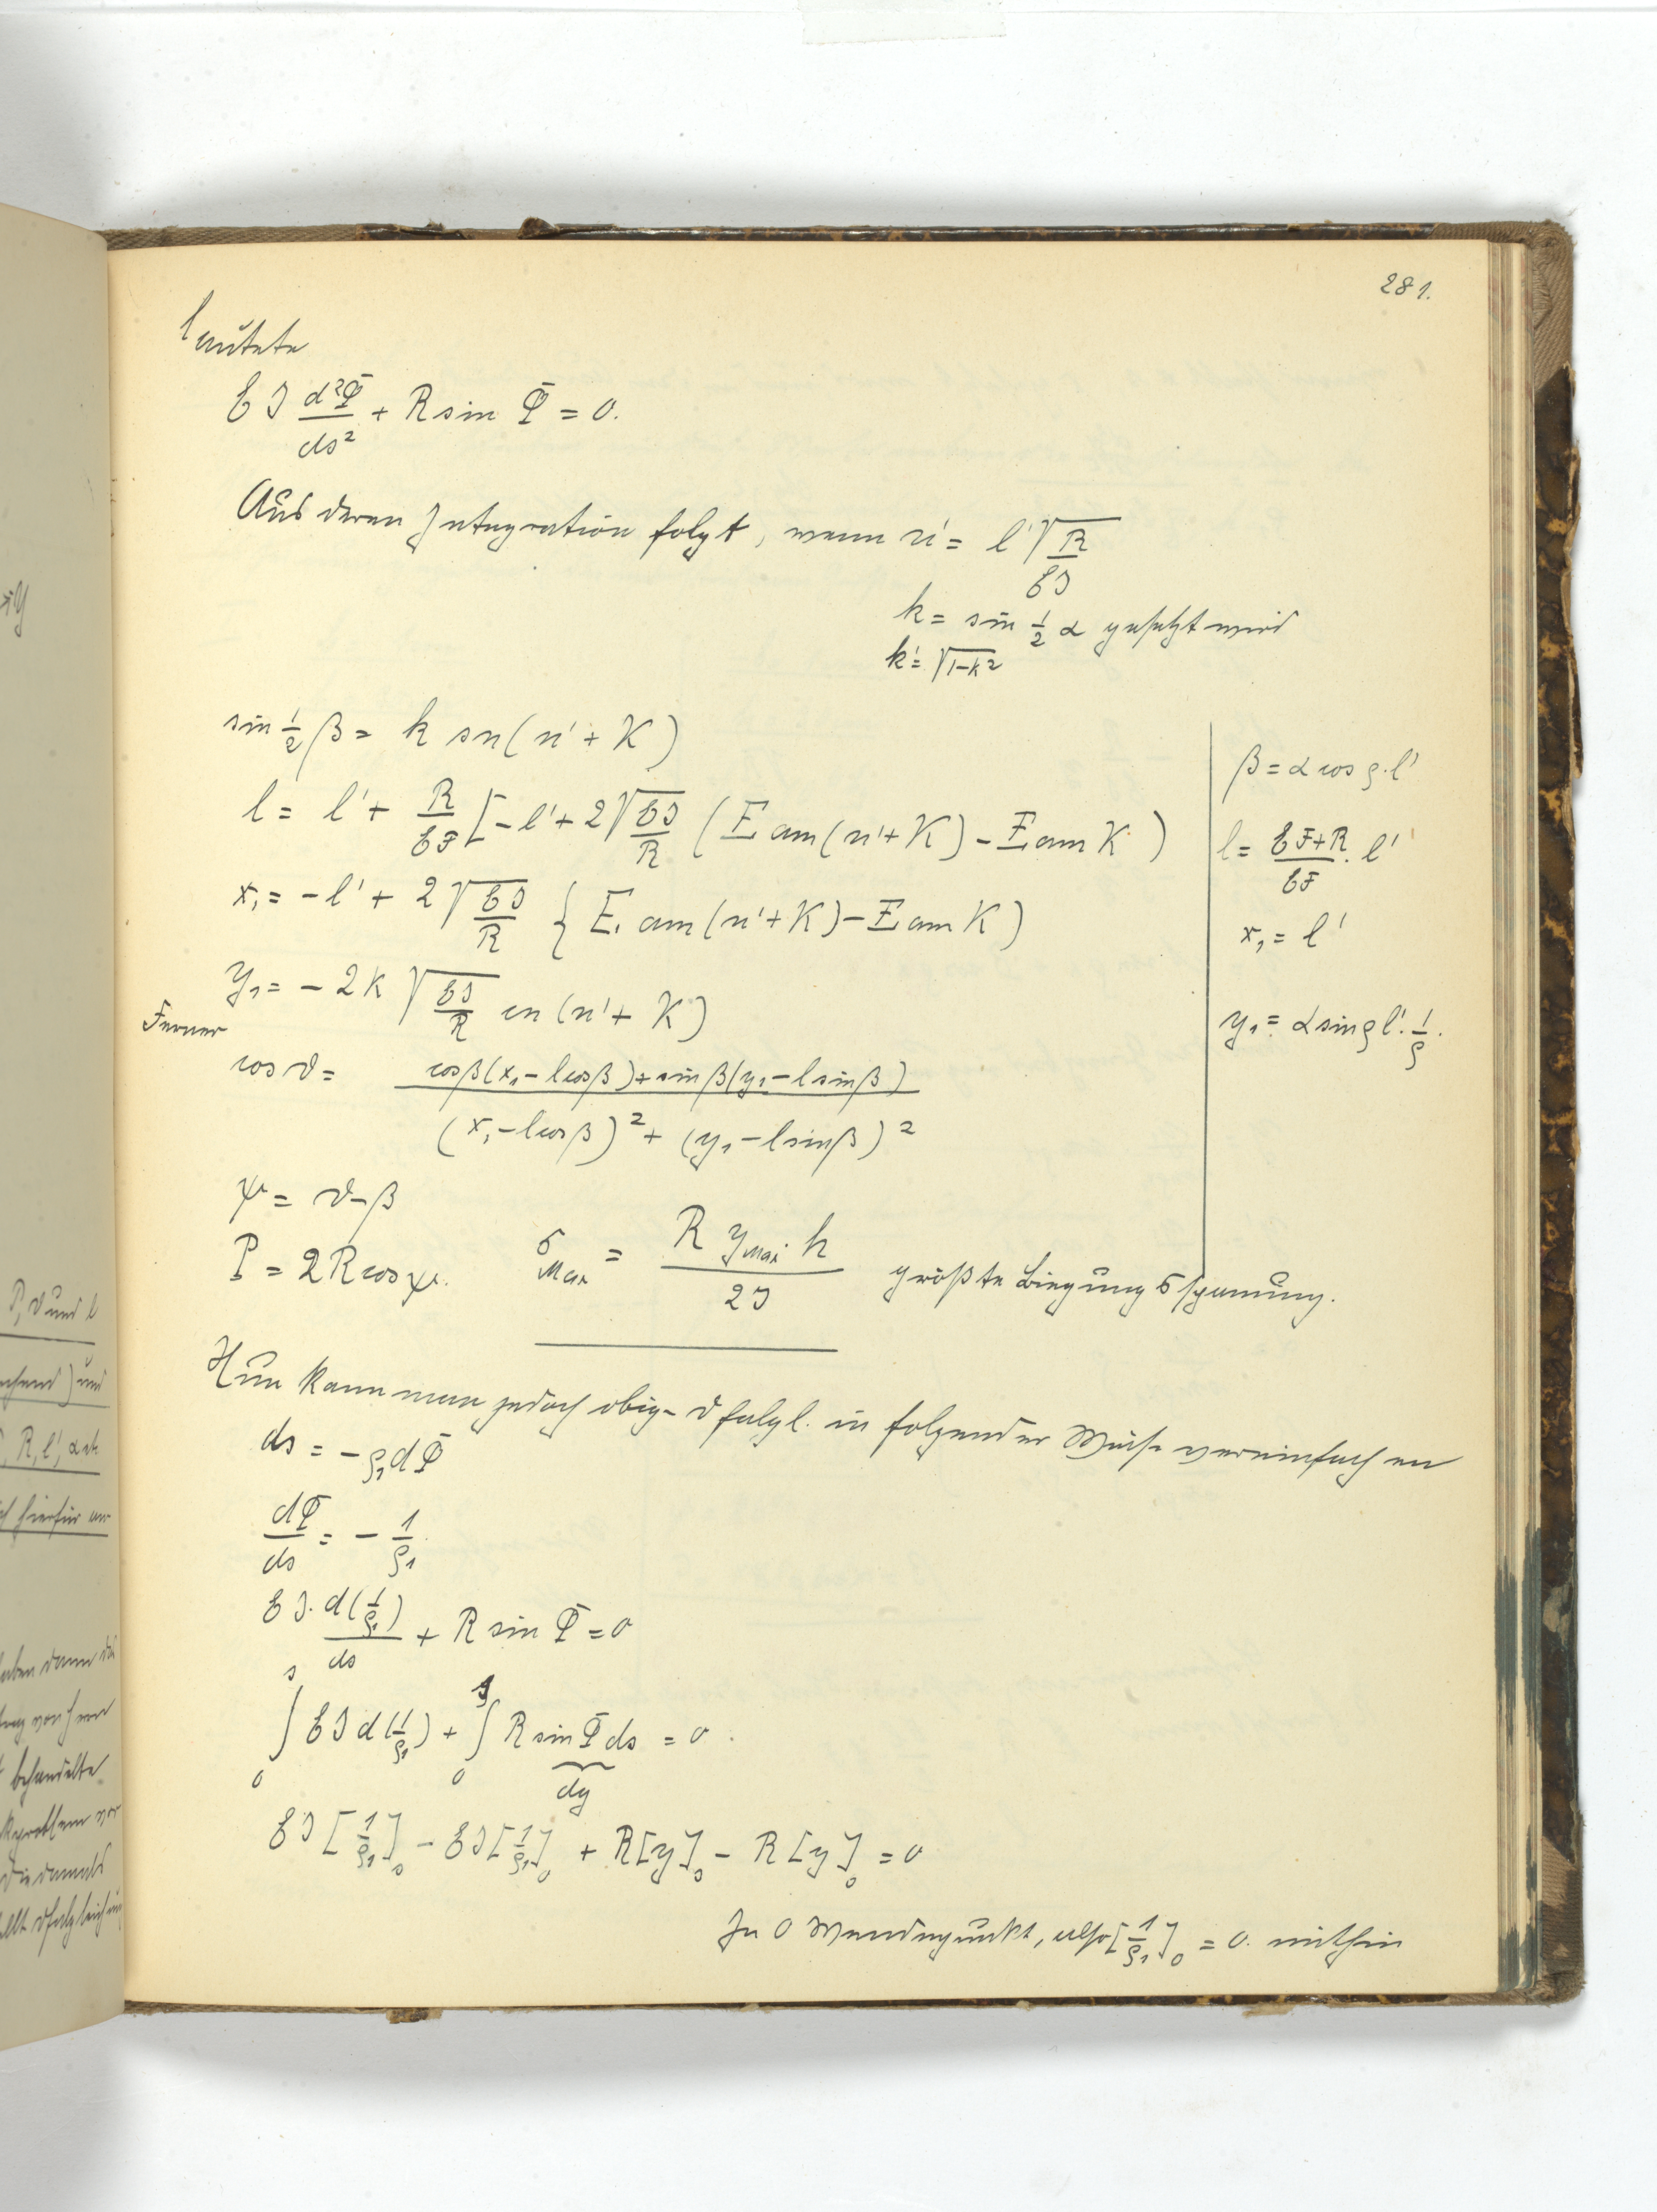 281.
lautete
EJ d²Φ/ds² + R sin Φ = 0.
Aus deren Integration folgt, wenn u' = l' √(R/EJ)
k = sin 1/2 α gesetzt wird
k' = √(1-k²)
sin 1/2 β = k sn(u' + K)
l = l' + R/EF [-l' + 2√(EJ/R) (E am(u'+K) - E am K)
x₁ = -l' + 2√(EJ/R) {E, am(u'+K) - E am K)
y₁ = -2k √(EJ/R) cn(u' + K)
Ferner
cos ϑ = (cosβ(x₁ - l cosβ) + sinβ(y₁ - l sinβ)) / ((x₁ - l cosβ)² + (y₁ - l sinβ)²)
ψ = ϑ - β
P = 2R cos ψ. σ Max = R y Max h / 2J größte Biegungsspannung.
β = α cos ρ·l'
l = (EF+R)/EF · l'
x₁ = l'
y₁ = α sin ρ l' · 1/ρ.
Nun kann man jedoch obige dfglgl. in folgender Weise vereinfachen
ds = -ρ₁ dΦ
dΦ/ds = - 1/ρ₁
EJ · d(1/ρ₁)/ds + R sin Φ = 0
∫₀ˢ EJ d(1/ρ₁) + ∫₀ˢ R sin Φ ds = 0.
dy
EJ [1/ρ₁]ₛ - EJ [1/ρ₁]₀ + R[y]ₛ - R[y]₀ = 0
In 0 Wendepunkt, also [1/ρ₁]₀ = 0. mithin
P, ϑ und l
) und
, R, l', α etc
hierfür
haben dann
behandelte
die damals